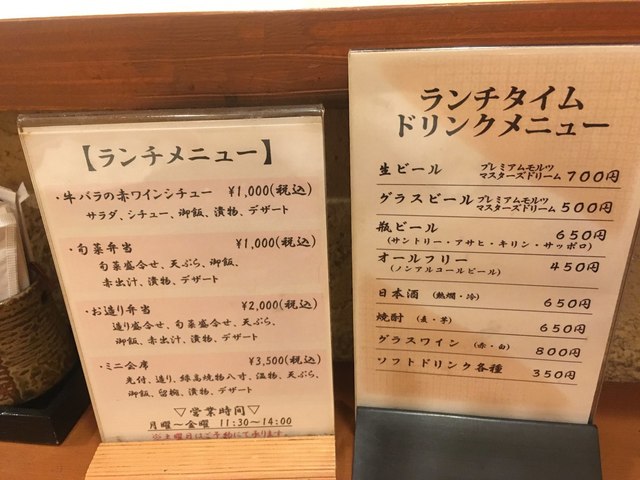 【ランチメニュー】
・牛バラの赤ワインシチュー ¥1,000(税込)
サラダ、シチュー、御飯、漬物、デザート
・旬菜弁当 ¥1,000(税込)
旬菜盛合せ、天ぷら、御飯、
赤出汁、漬物、デザート
・お造り弁当 ¥2,000(税込)
造り盛合せ、旬菜盛合せ、天ぷら、
御飯、赤出汁、漬物、デザート
・ミニ会席 ¥3,500(税込)
先付、造り、縁高焼物八寸、温物、天ぷら、
御飯、留椀、漬物、デザート
▽営業時間▽
月曜～金曜 11:30～14:00
※土曜日はご予約にて承ります。
ランチタイム
ドリンクメニュー
生ビール プレミアムモルツ マスターズドリーム 700円
グラスビール プレミアムモルツ マスターズドリーム 500円
瓶ビール 650円
(サントリー・アサヒ・キリン・サッポロ)
オールフリー 450円
(ノンアルコールビール)
日本酒 (熱燗・冷) 650円
焼酎 (麦・芋) 650円
グラスワイン (赤・白) 800円
ソフトドリンク各種 350円